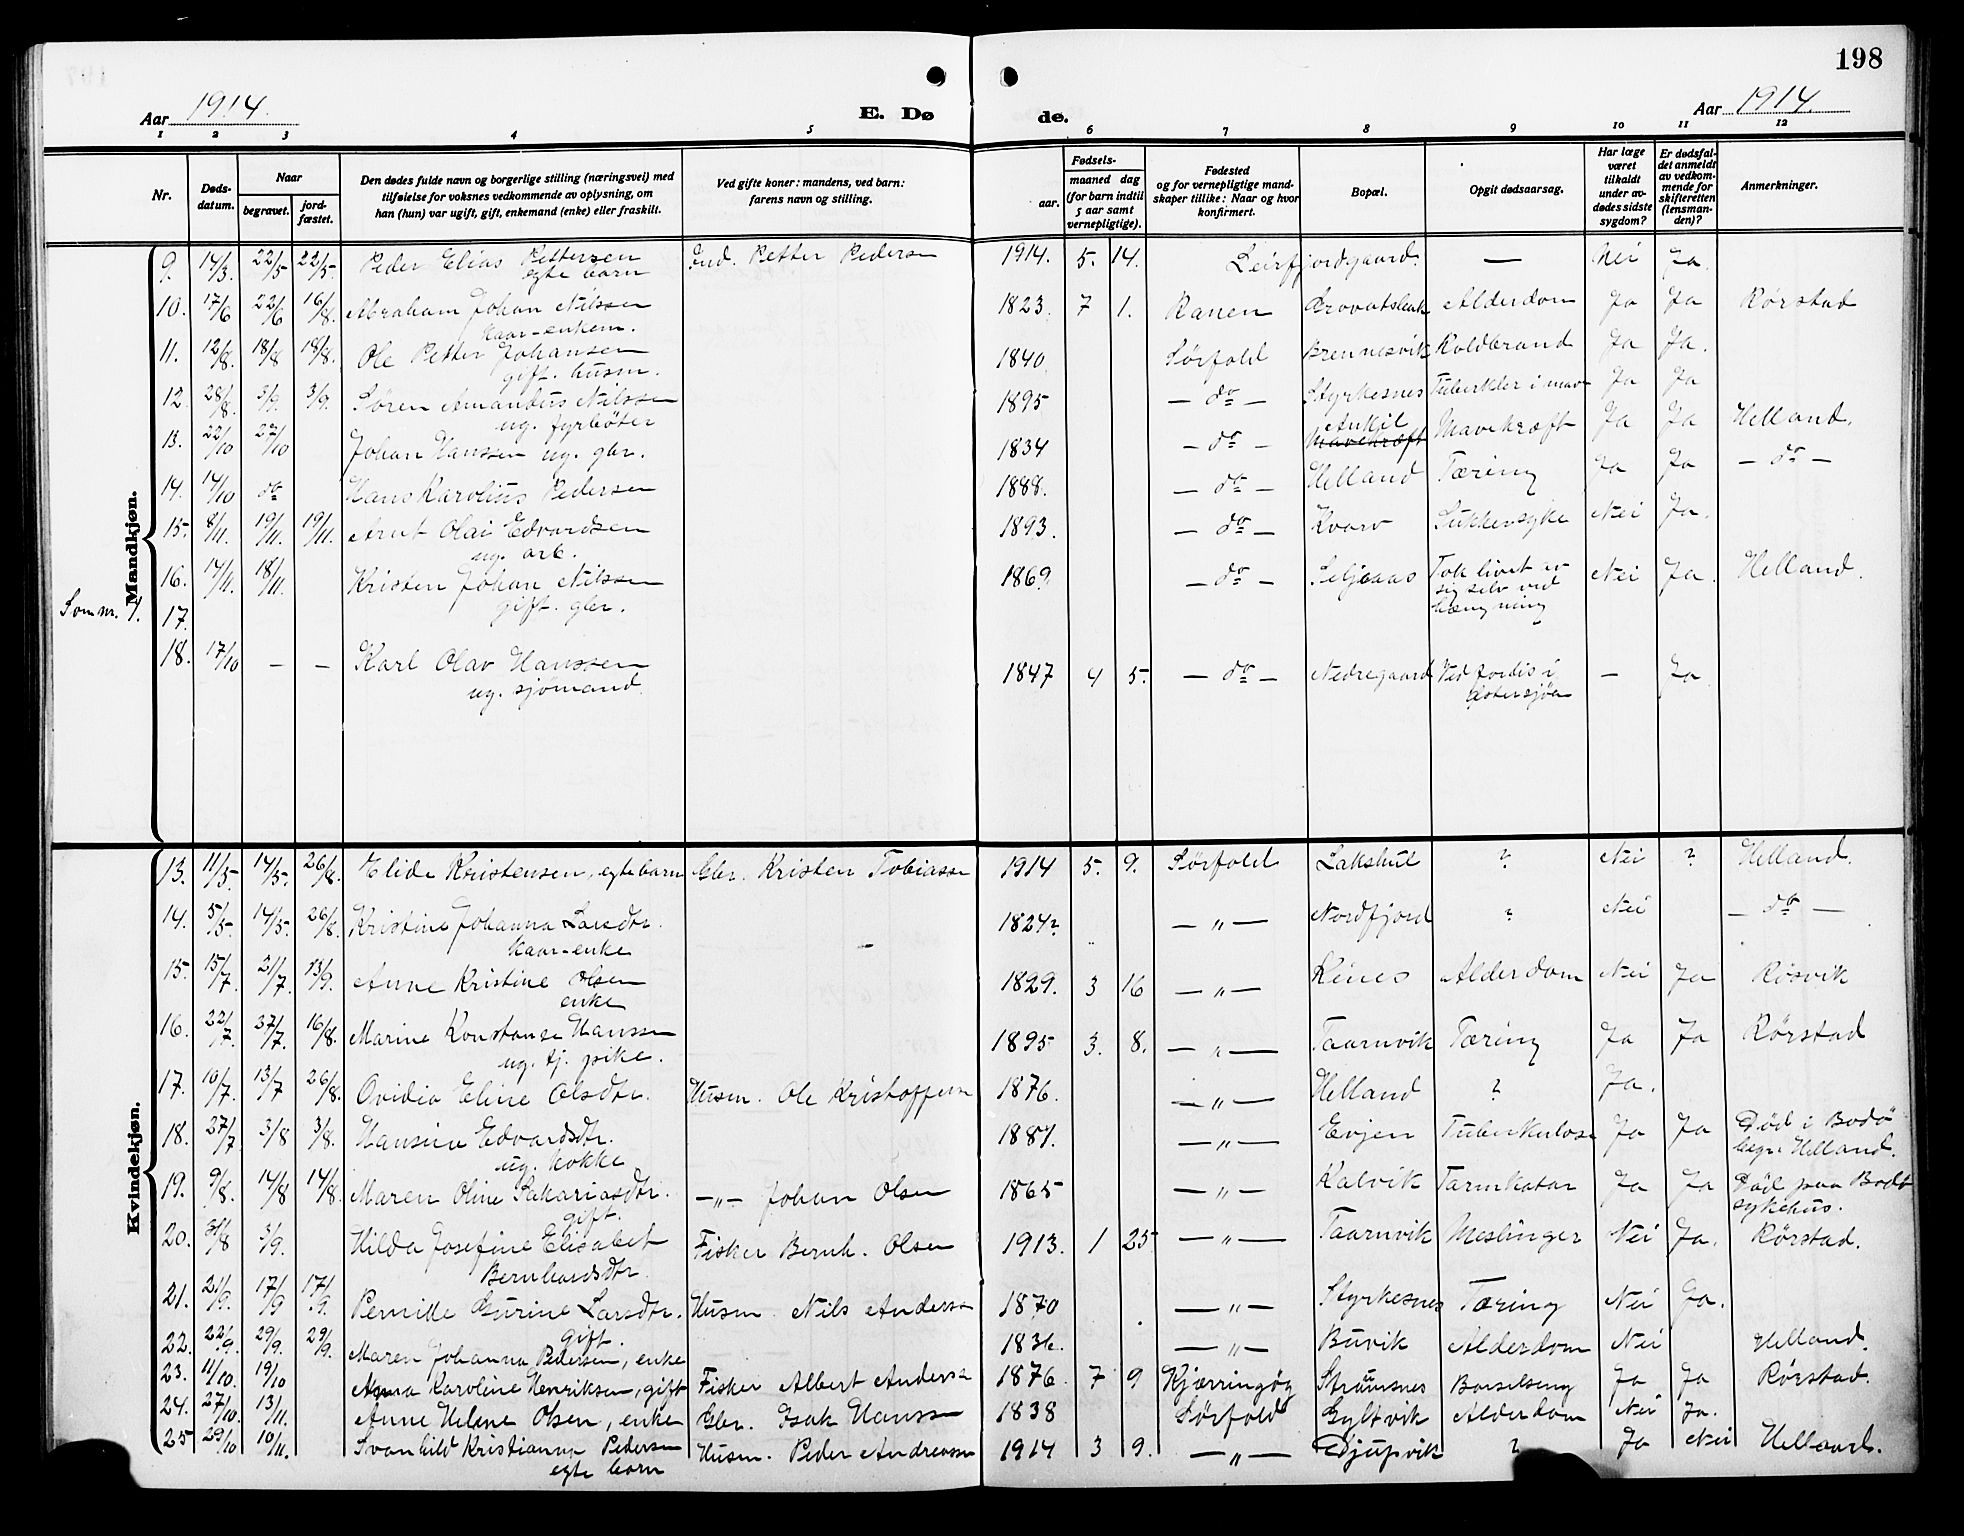 198
Aar 1914. E. Døde. Aar 1914.
1 2 3 4 5 6 7 8 9 10 11 12
Nr. Døds-datum. Naar begravet. jord-fæstet. Den dødes fulde navn og borgerlige stilling (næringsvei) med tilføielse for voksnes vedkommende av oplysning, om han (hun) var ugift, gift, enkemand (enke) eller fraskilt. Ved gifte koner: mandens, ved barn: farens navn og stilling. Fødsels- aar. maaned dag (for barn indtil 5 aar samt vernepligtige). Fødested og for vernepligtige mandskaper tillike: Naar og hvor konfirmert. Bopæl. Opgit dødsaarsag. Har læge været tilkaldt under avdødes sidste sygdom? Er dødsfaldet anmeldt av vedkommende for skifteretten (lensmanden)? Anmerkninger.
Mandkjøn.
9. 14/3 22/5 22/5 Peder Elias Pettersen Petter Pedersen 1914. 5. 14. Leirfjordgaard. — Nei Ja.
egte barn
10. 17/6 22/6 16/8. Abraham Johan Nilssen 1823 7 1. Ranen Alderdom Ja Ja Rørstad
kaar-enkem.
11. 12/8. 18/8 18/8. Ole Petter Johansen 1840 Sørfold Brennesvik Koldbrand Ja Ja.
gift. husm.
12 28/8. 3/9. 3/9. Søren Amandus Nilssen 1895 — do — Styrkesnes Tuberkler i mave Ja Ja
ug. fyrbøter
13. 22/10 27/10 Johan Hanssen ug. gbr. 1834 — do — Mavekræft Mavekræft Ja Ja Helland.
14. 14/10 do Hans Karolius Pedersen 1888. — do — Helland Tæring Ja Ja — do —
15. 8/11. 19/11. 19/11. Arnt Olai Edvardsen 1893. — do — Kvarv Sukkersyke Nei Ja.
ug. arb.
16. 14/11. 18/11. Kristen Johan Nilssen 1869. — do — Seljeaas Tok livet av Nei Ja. Helland.
gift. gbr. sig selv ved
hængning
Som nr. 4. 17.
18. 17/10 — — Karl Olav Hanssen 1847 4 5. — do — Nedregaard Ved forlis i — Ja
ug. sjømand. Østersjøen
Kvindekjøn.
13. 11/5. 14/5. 26/8. Elide Kristensen, egte barn Gbr. Kristen Tobiassen 1914 5. 9. Sørfold Lakshul ? Nei ? Helland.
14. 5/5. 14/5. 26/8. Kristine Johanna Larsdtr. 1824? — „ — Nordfjord ? Nei — do —
kaar-enke
15. 15/7. 21/7. 13/9. Anne Kristine Olsen 1829. 3 16 — „ — Kines Alderdom Nei Ja Røsvik
enke
16. 22/7. 27/7. 16/8. Marine Konstanse Hanssen 1895 3. 8. — „ — Taarnvik Tæring Ja Ja Rørstad
ug. tj. pike.
17. 10/7. 13/7 26/8. Ovidia Eline Olsdtr. Husm. Ole Kristoffersen 1876. — „ — Helland ? Ja.
18. 27/7 3/8 3/8. Hansine Edvardsdtr. 1887. — „ — Evjen Tuberkulose Ja Ja Død i Bodø
ug. kokke begr. Helland.
19. 9/8. 14/8 14/8. Maren Oline Sakariasdtr. — „ — Johan Olsen 1865 — „ — Kalvik Tarmkatar Ja Ja Død paa Bodø
gift. sykehus.
20. 3/9. Hilda Josefine Elisabet Fisker Bernh. Olsen 1913. 1 25. — „ — Taarnvik Meslinger Nei Ja. Rørstad.
Bernhardsdtr.
21. 21/9. 17/9 17/9. Pernille Gurine Larsdtr. Husm. Nils Anderssen 1870 — „ — Styrkesnes Tæring Nei Ja.
gift.
22. 22/9. 29/9. 29/9. Maren Johanna Pedersen, enke 1836. — „ — Buvik Alderdom Nei Helland.
23. 11/10. 19/10 Anna Karoline Henriksen, gift Fisker Albert Anderssen 1876. 7 9 Kjærringøy Strømsnes Barselseng Ja Ja Rørstad.
24. 27/10. 13/11. Anne Heline Olsen, enke Gbr. Isak Hanssen 1838 Sørfold Gyltvik Alderdom Nei Ja.
25 29/10 10/11. Svanhild Kristianna Pedersen Husm. Peder Andreassen 1914 3 9. — „ — Djupvik ? Ja Nei Helland.
egte barn